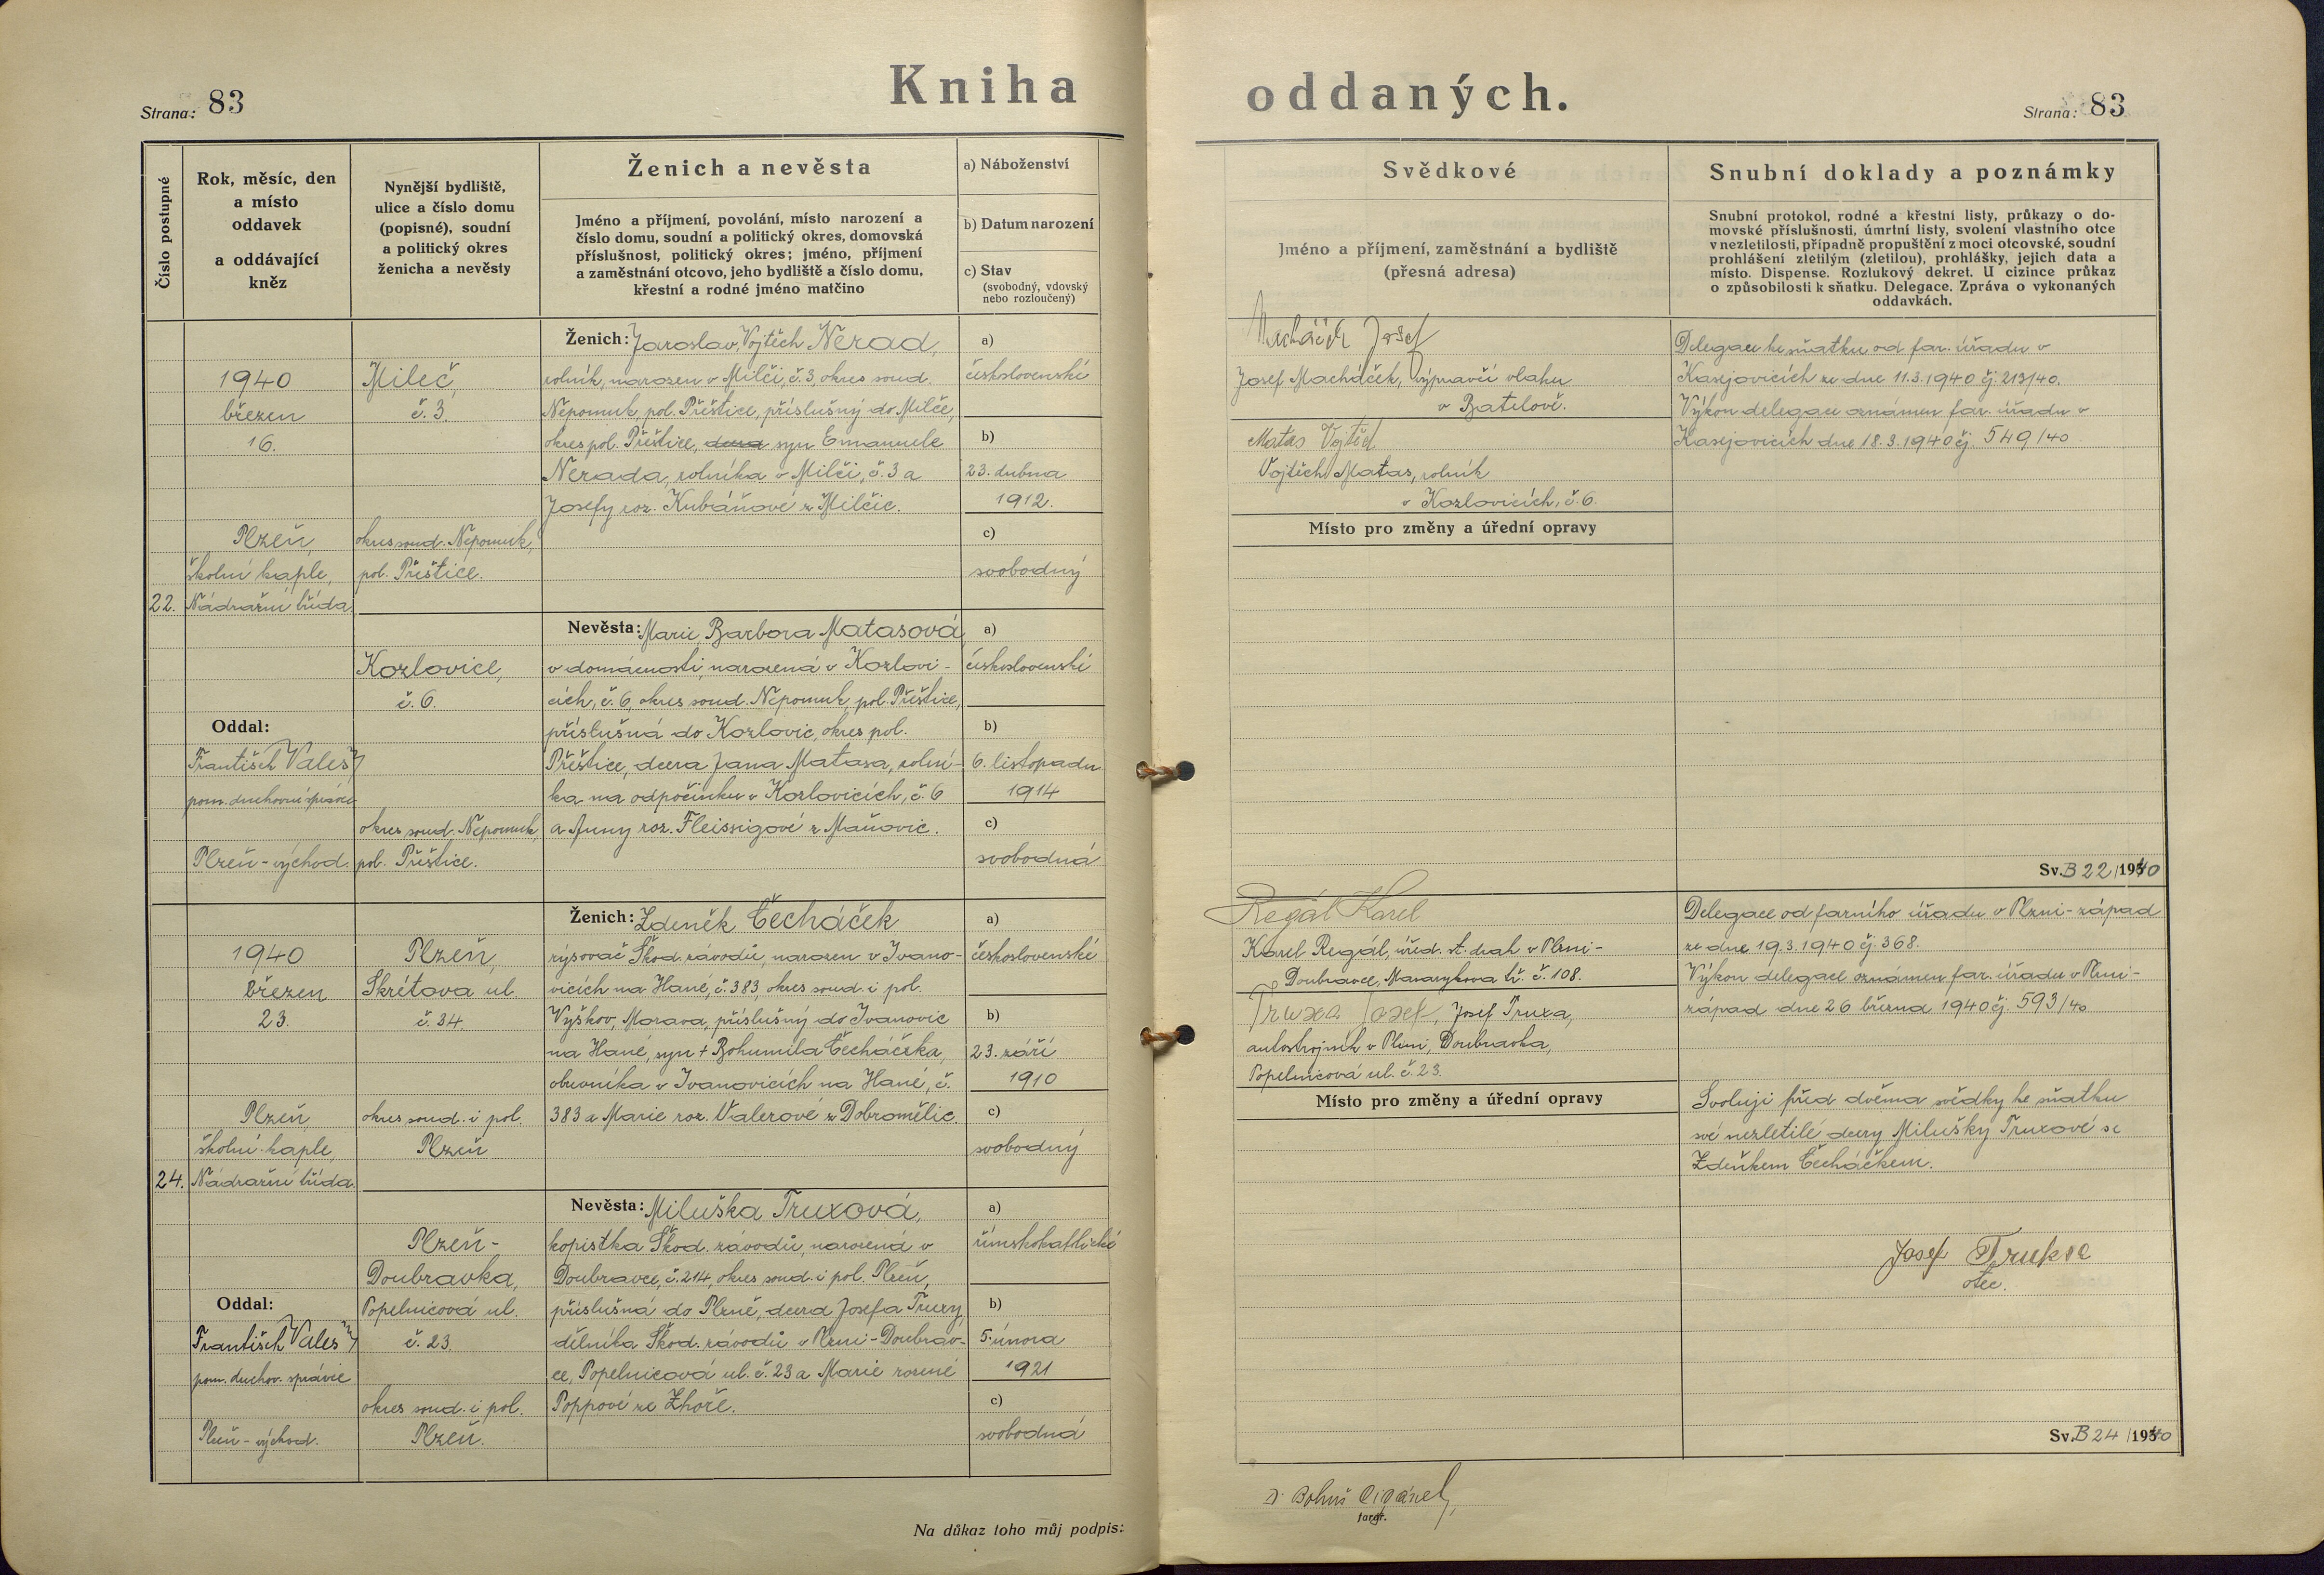 Kniha oddaných.
Strana: 83
Strana: 83
Číslo postupné
Rok, měsíc, den
a místo
oddavek
a oddávající
kněz
Nynější bydliště,
ulice a číslo domu
(popisné), soudní
a politický okres
ženicha a nevěsty
Ženich a nevěsta
Jméno a příjmení, povolání, místo narození a
číslo domu, soudní a politický okres, domovská
příslušnost, politický okres; jméno, příjmení
a zaměstnání otcovo, jeho bydliště a číslo domu,
křestní a rodné jméno matčino
a) Náboženství
b) Datum narození
c) Stav
(svobodný, vdovský
nebo rozloučený)
Svědkové
Jméno a příjmení, zaměstnání a bydliště
(přesná adresa)
Snubní doklady a poznámky
Snubní protokol, rodné a křestní listy, průkazy o do-
movské příslušnosti, úmrtní listy, svolení vlastního otce
v nezletilosti, případně propuštění z moci otcovské, soudní
prohlášení zletilým (zletilou), prohlášky, jejich data a
místo. Dispense. Rozlukový dekret. U cizince průkaz
o způsobilosti k sňatku. Delegace. Zpráva o vykonaných
oddavkách.
22.
1940
březen
16.
Plzeň,
školní kaple,
Nádražní třída.
Oddal:
František Valeš
pom. duchovní správce
Plzeň-východ.
Mileč,
č. 3.
okres soud. Nepomuk,
pol. Přeštice.
Kozlovice,
č. 6.
okres soud. Nepomuk,
pol. Přeštice.
Ženich: Jaroslav, Vojtěch Nerad,
rolník, narozen v Milči, č. 3, okres soud.
Nepomuk, pol. Přeštice, příslušný do Milče,
okres pol. Přeštice, dcera syn Emanuele
Nerada, rolníka v Milči, č. 3 a
Josefy roz. Kubáňové z Milčic.
a)
československé
b)
23. dubna
1912.
c)
svobodný
Nevěsta: Marie, Barbora Matasová,
v domácnosti, narozená v Kozlovi-
cích, č. 6, okres soud. Nepomuk, pol. Přeštice,
příslušná do Kozlovic, okres pol.
Přeštice, dcera Jana Matasa, rolní-
ka na odpočinku v Kozlovicích, č. 6
a Anny roz. Fleissigové z Maňovic.
a)
československé
b)
6. listopadu
1914
c)
svobodná
Macháček Josef
Josef Macháček, výpravčí vlaku
v Batelově.
Matas Vojtěch
Vojtěch Matas, rolník
v Kozlovicích, č. 6.
Místo pro změny a úřední opravy
Delegace ke sňatku od far. úřadu v
Kasejovicích ze dne 11.3.1940 čj. 213/40.
Výkon delegace oznámen far. úřadu v
Kasejovicích dne 18.3.1940 čj. 549/40
Sv. B 22/1940
24.
1940
březen
23.
Plzeň
školní kaple,
Nádražní třída.
Oddal:
František Valeš
pom. duchov. správce
Plzeň-východ.
Plzeň,
Skrétova ul.
č. 34.
okres soud. i pol.
Plzeň
Plzeň-
Doubravka,
Popelnicová ul.
č. 23.
okres soud. i pol.
Plzeň.
Ženich: Zdeněk Čecháček
rýsovač Škod. závodů, narozen v Ivano-
vicích na Hané, č. 383, okres soud. i pol.
Vyškov, Morava, příslušný do Ivanovic
na Hané, syn + Bohumila Čecháčka,
obuvníka v Ivanovicích na Hané, č.
383 a Marie roz. Valerové z Dobromělic.
a)
československé
b)
23. září
1910
c)
svobodný
Nevěsta: Miluška Truxová,
kopistka Škod. závodů, narozená v
Doubravce, č. 214, okres soud. i pol. Plzeň,
příslušná do Plzně, dcera Josefa Truxy
dělníka Škod. závodů v Plzni-Doubrav-
ce, Popelnicová ul. č. 23 a Marie rozené
Poppové ze Zhoře.
a)
římskokatolické
b)
5. února
1921
c)
svobodná
Regál Karel
Karel Regál, úřed. st. drah v Plzni-
Doubravce, Masarykova tř. č. 108.
Truxa Josef, Josef Truxa,
autostrojník v Plzni, Doubravka,
Popelnicová ul. č. 23.
Místo pro změny a úřední opravy
Delegace od farního úřadu v Plzni-západ
ze dne 19.3.1940 čj. 368.
Výkon delegace oznámen far. úřadu v Plzni-
západ dne 26 března 1940 čj. 593/40
Svoluji před dvěma svědky ke sňatku
své nezletilé dcery Milušky Truxové se
Zdeňkem Čecháčkem.
Josef Truksa
otec.
Sv. B 24/1940
Na důkaz toho můj podpis:
Bohuš Cigánek,
farář.